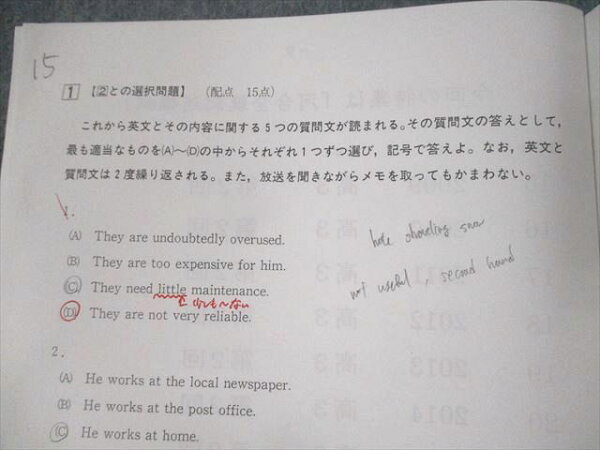 15
1 【②との選択問題】 (配点 15点)
これから英文とその内容に関する5つの質問文が読まれる。その質問文の答えとして,
最も適当なものを(A)〜(D)の中からそれぞれ1つずつ選び, 記号で答えよ。なお, 英文と
質問文は2度繰り返される。また, 放送を聞きながらメモを取ってもかまわない。
1.
(A) They are undoubtedly overused.
(B) They are too expensive for him.
(C) They need little maintenance.
少しも〜ない
(D) They are not very reliable.
hate shoveling snow
not useful, second hand
2.
(A) He works at the local newspaper.
(B) He works at the post office.
(C) He works at home.